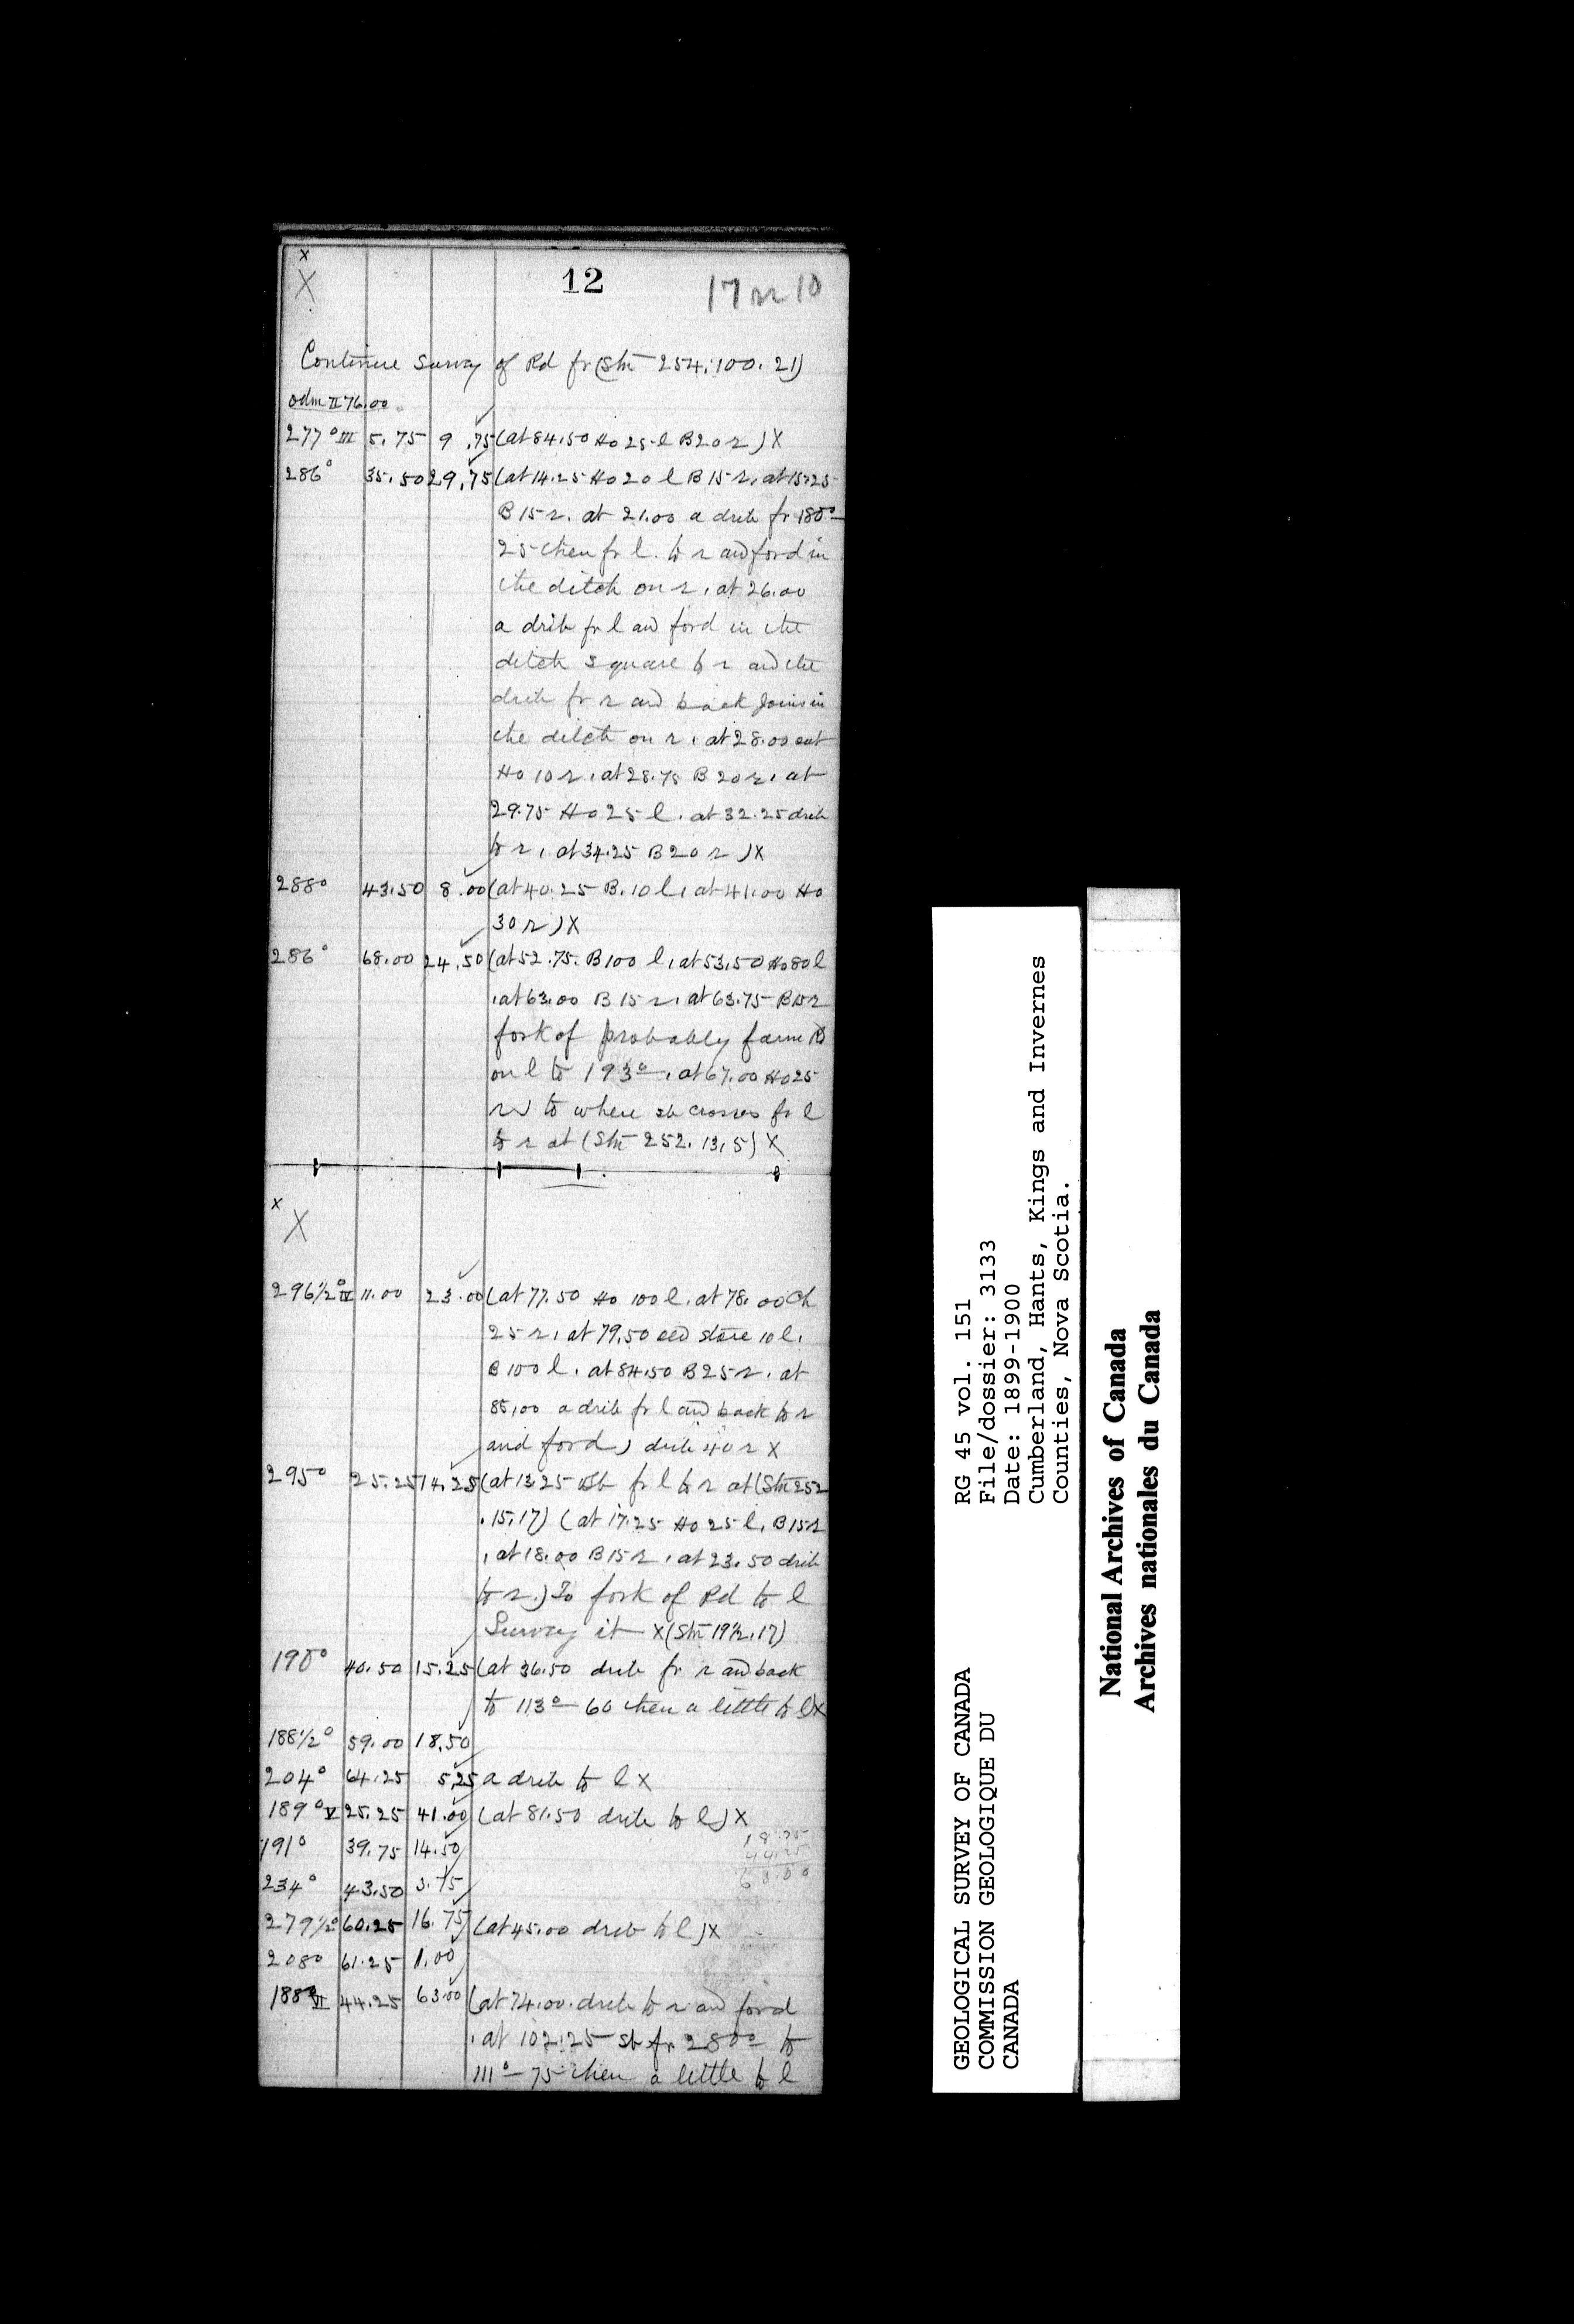 x
X
12
17 r 10
Continue Survey of Rd fr (Stn 254.100.21)
odm II 76.00
277° III 5.75 9.75 (at 84.50 Ho 25 l B 20 r) X
286° 35.50 29.75 (at 14.25 Ho 20 l B 15 r, at 15.25
B 15 r. at 21.00 a drib fr 180°—
25 then fr l. to r and ford in
the ditch on r, at 26.00
a drib fr l and ford in the
ditch square to r and the
drib fr r and back joins in
the ditch on r, at 28.00 out
Ho 10 r, at 28.75 B 20 r, at
29.75 Ho 25 l. at 32.25 drib
to r, at 34.25 B 20 r) X
288° 43.50 8.00 (at 40.25 B. 10 l, at 41.00 Ho
30 r) X
286° 68.00 24.50 (at 52.75. B 100 l, at 53.50 Ho 80 l
, at 63.00 B 15 r, at 63.75 B 15 r
fork of probably farm
on l to 193°—, at 67.00 Ho 25
r) to where sb crosses fr l
to r at (Stn 252.13.5) X
x
X
296½° IV 11.00 23.00 (at 77.50 Ho 100 l. at 78.00 Ch
25 r, at 79.50 store 10 l.
B 100 l. at 84.50 B 25 r. at
85.00 a drib fr l and back to r
and ford) drib 40 r X
295° 25.25 14.25 (at 13.25 sb fr l to r at (Stn 252
.15.17) (at 17.25 Ho 25 l, B 15 r
, at 18.00 B 15 r, at 23.50 drib
to r.) To fork of Rd to l
Survey it X (Stn 19½.17)
190° 40.50 15.25 (at 36.50 drib fr r and back
to 113°— 60 then a little to l) X
188½° 59.00 18.50
204° 64.25 5.25 a drib to l X
189° V 25.25 41.00 (at 81.50 drib to l) X
191° 39.75 14.50
234° 43.50 3.75
279½° 60.25 16.75 (at 45.00 drib to l) X
208° 61.25 1.00
188° VI 44.25 63.00 (at 74.00. drib to r and ford
, at 102.25 sb fr 280°— to
111°— 75 then a little to l
18.75
44.25
63.00
GEOLOGICAL SURVEY OF CANADA
COMMISSION GEOLOGIQUE DU
CANADA
RG 45 vol. 151
File/dossier: 3133
Date: 1899-1900
Cumberland, Hants, Kings and Invernes
Counties, Nova Scotia.
National Archives of Canada
Archives nationales du Canada